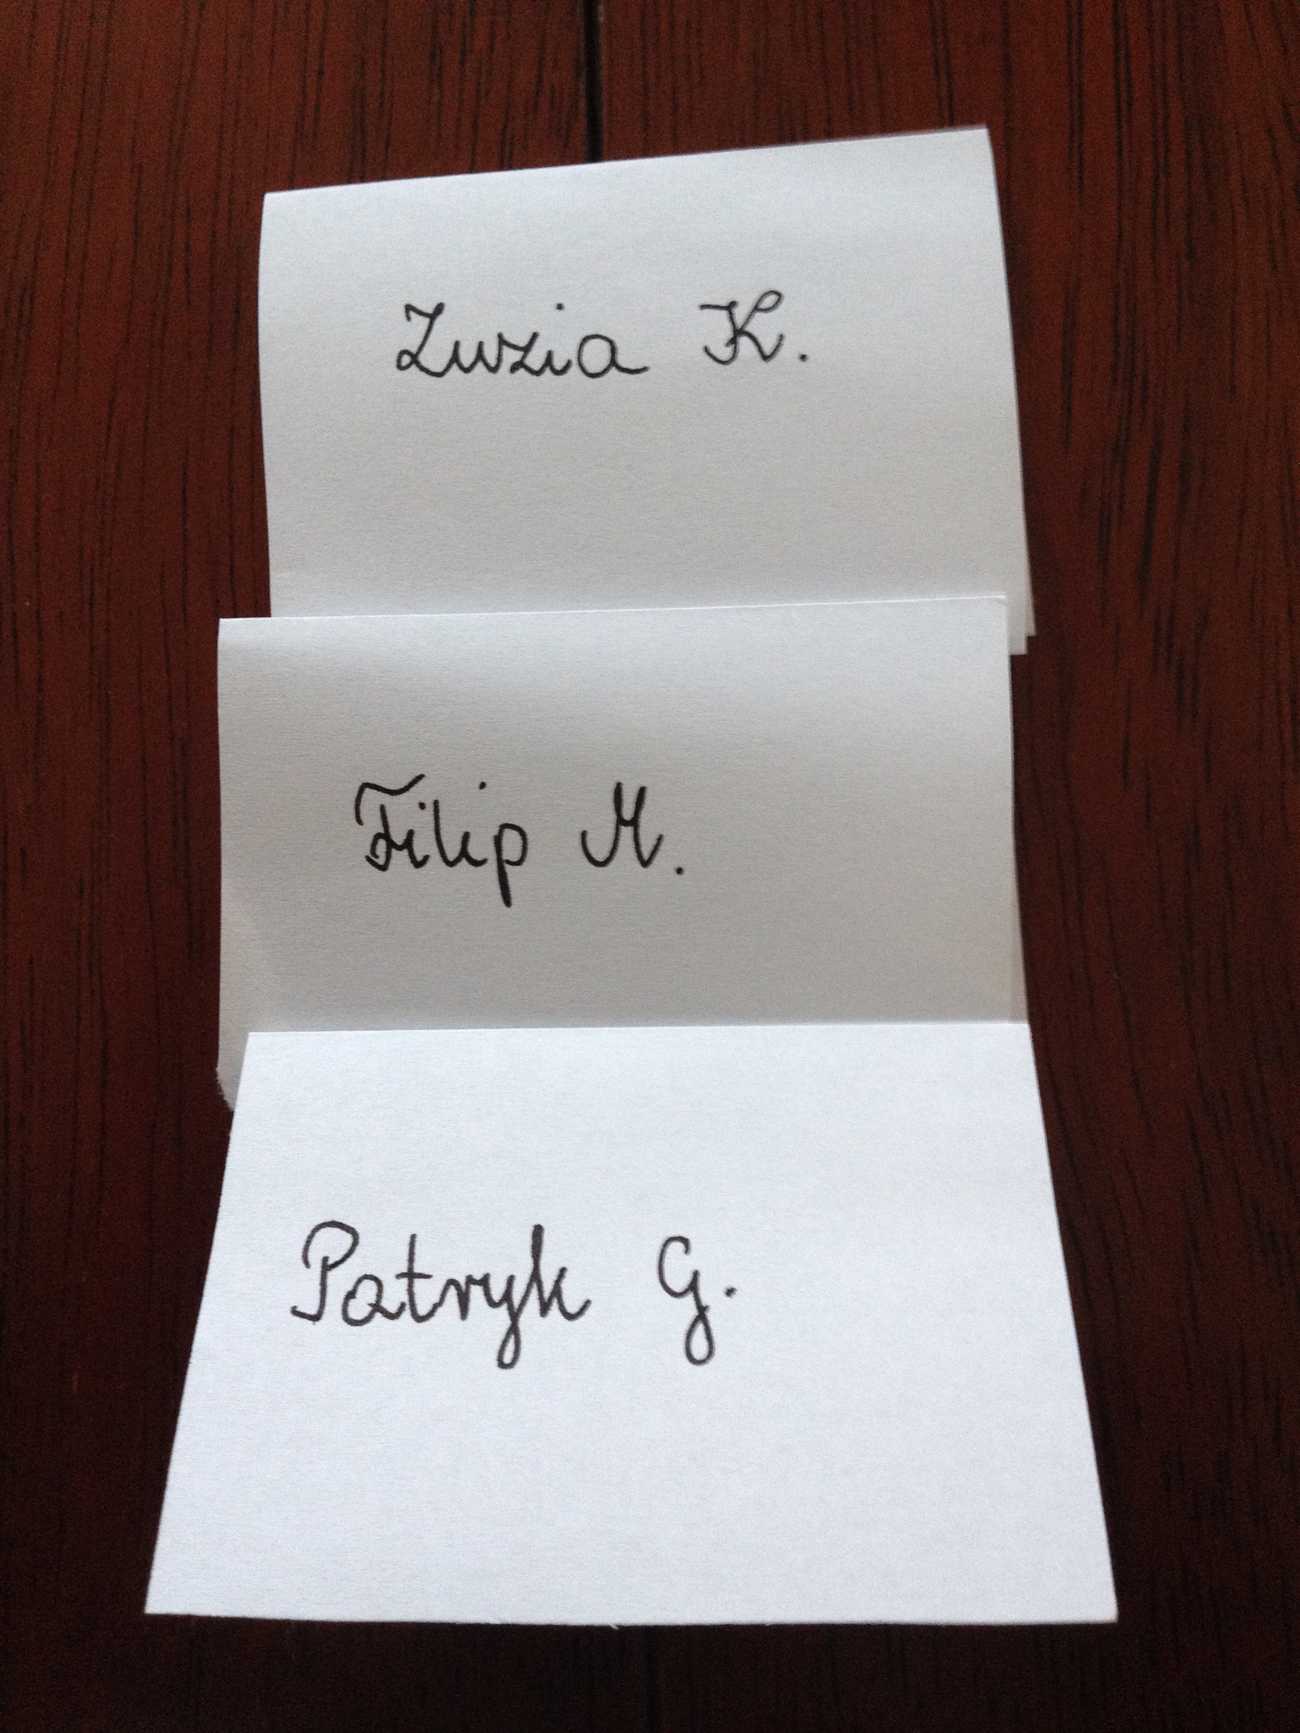 Zuzia K.
Filip M.
Patryk G.